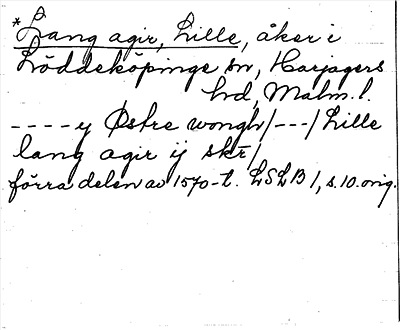 *Lang agir, Lille, åker i
Löddeköpinge sn, Harjagers
hd, Malm. l.
----y Østre wongh/---/Lille
lang agir ij skr̄/
förra delen av 1570-t. LSLB 1, s. 10. orig.